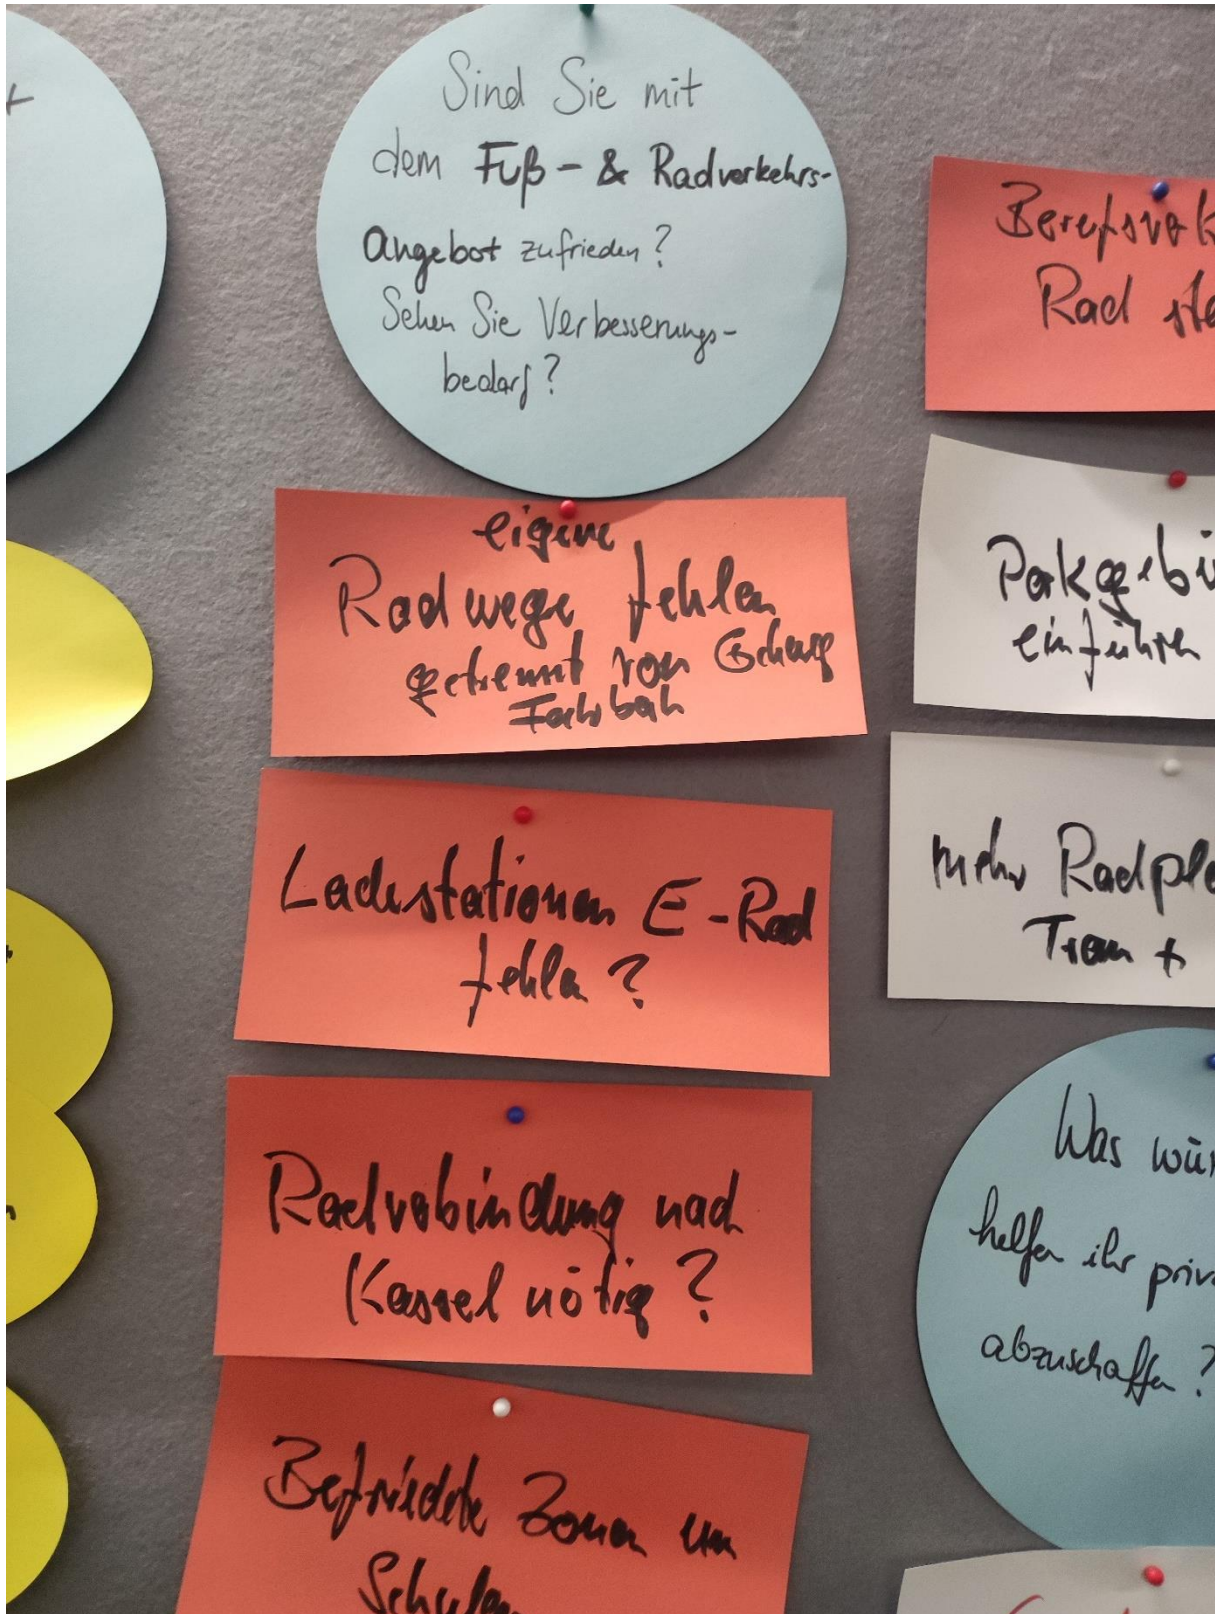 Sind Sie mit
dem Fuß- & Radverkehrs-
Angebot zufrieden?
Sehen Sie Verbesserungs-
bedarf?
eigene
Radwege fehlen
getrennt von
Fahrbah
Ladestationen E-Rad
fehlen?
Radverbindung nach
Kassel nötig?
Befriedete Zonen um
Schulen
Rad
einführen
mehr
Tram +
Was
helfen ihr
abzuschaffen?